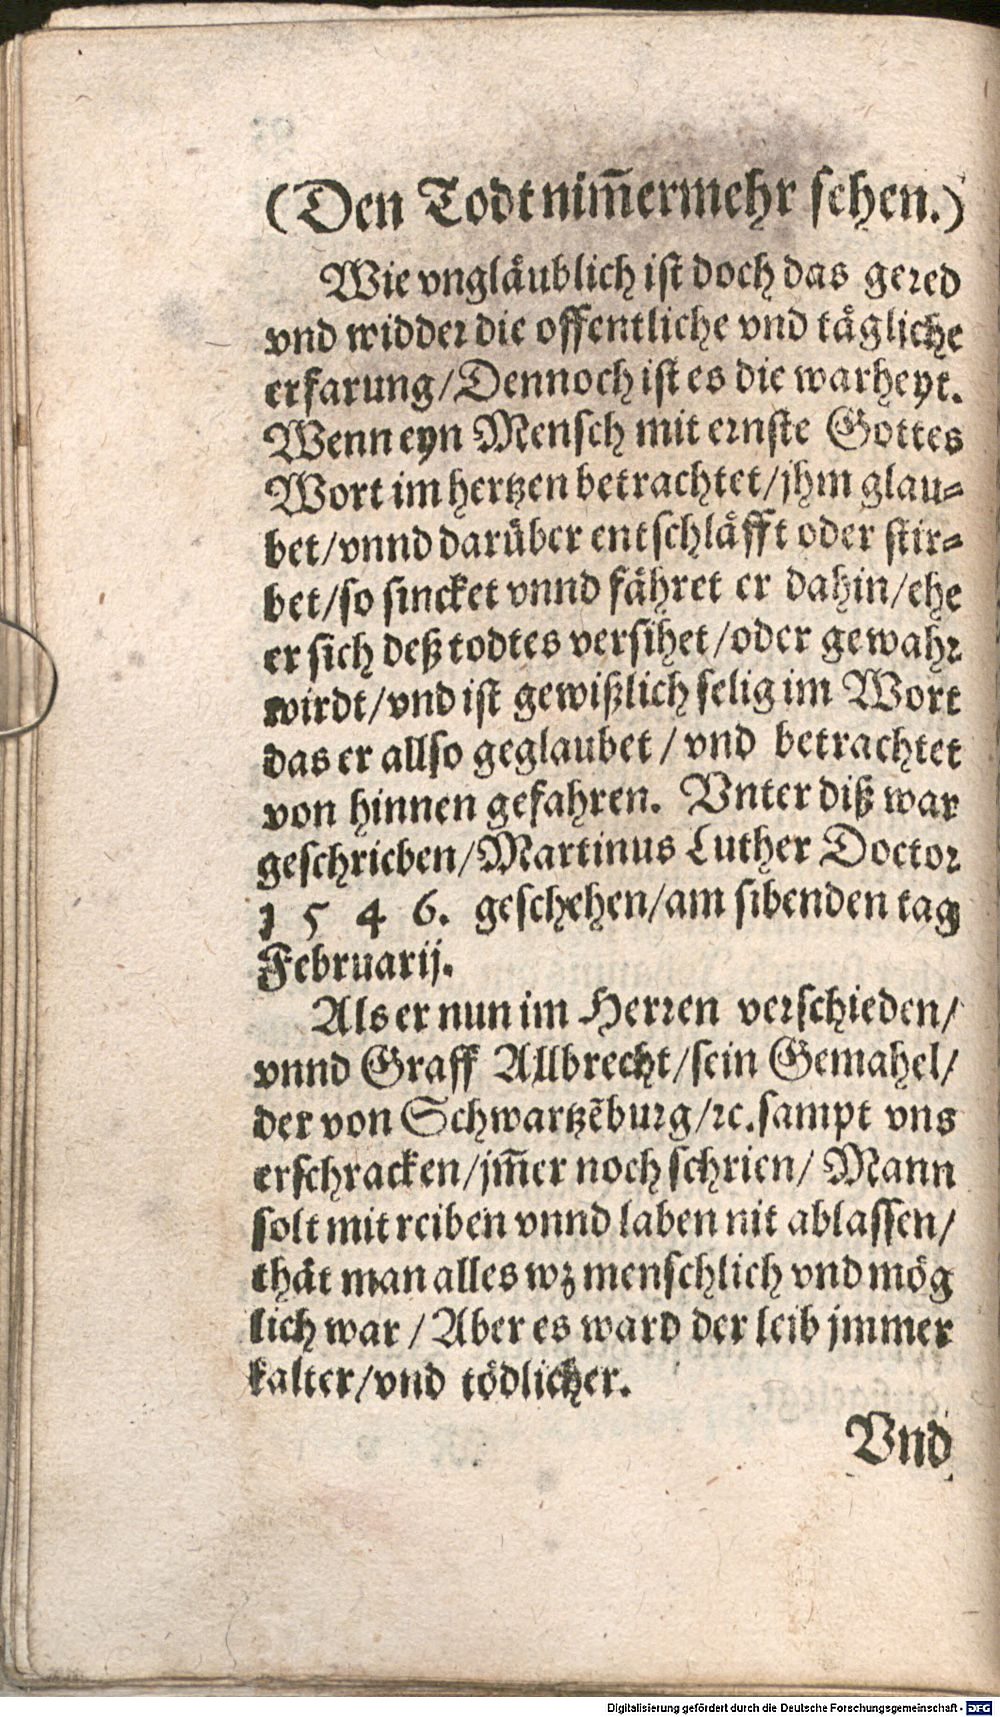 (Den Todt nim̃ermehr sehen.)
Wie vngläublich ist doch das gered
vnd widder die offentliche vnd tägliche
erfarung/Dennoch ist es die warheyt.
Wenn eyn Mensch mit ernste Gottes
Wort im hertzen betrachtet/jhm glau-
bet/vnnd darüber entschläfft oder stir-
bet/so sincket vnnd fähret er dahin/ehe
er sich deß todtes versihet/oder gewahr
wirdt/vnd ist gewißlich selig im Wort
das er allso geglaubet/vnd betrachtet
von hinnen gefahren. Vnter diß war
geschrieben/Martinus Luther Doctor
1546. geschehen/am sibenden tag
Februarij.
Als er nun im Herren verschieden/
vnnd Graff Allbrecht/sein Gemahel/
der von Schwartzẽburg/ꝛc.sampt vns
erschracken/jm̃er noch schrien/Mann
solt mit reiben vnnd laben nit ablassen/
thät man alles wz menschlich vnd mög
lich war/Aber es ward der leib jmmer
kalter/vnd tödlicher.
Vnd
Digitalisierung gefördert durch die Deutsche Forschungsgemeinschaft - DFG